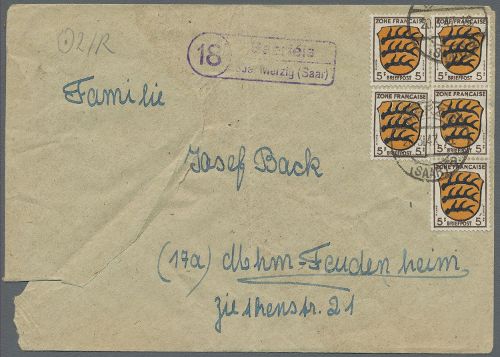 O2/R
18
Saarfels
über Merzig (Saar)
ZONE FRANÇAISE
5 BRIEFPOST 5
ZONE FRANÇAISE
5 BRIEFPOST 5
ZONE FRANÇAISE
5 BRIEFPOST 5
ZONE FRANÇAISE
5 BRIEFPOST 5
ZONE FRANÇAISE
5 BRIEFPOST 5
(SAAR)
Familie
Josef Back
(17a) Mhm-Feudenheim
Ziethenstr. 21